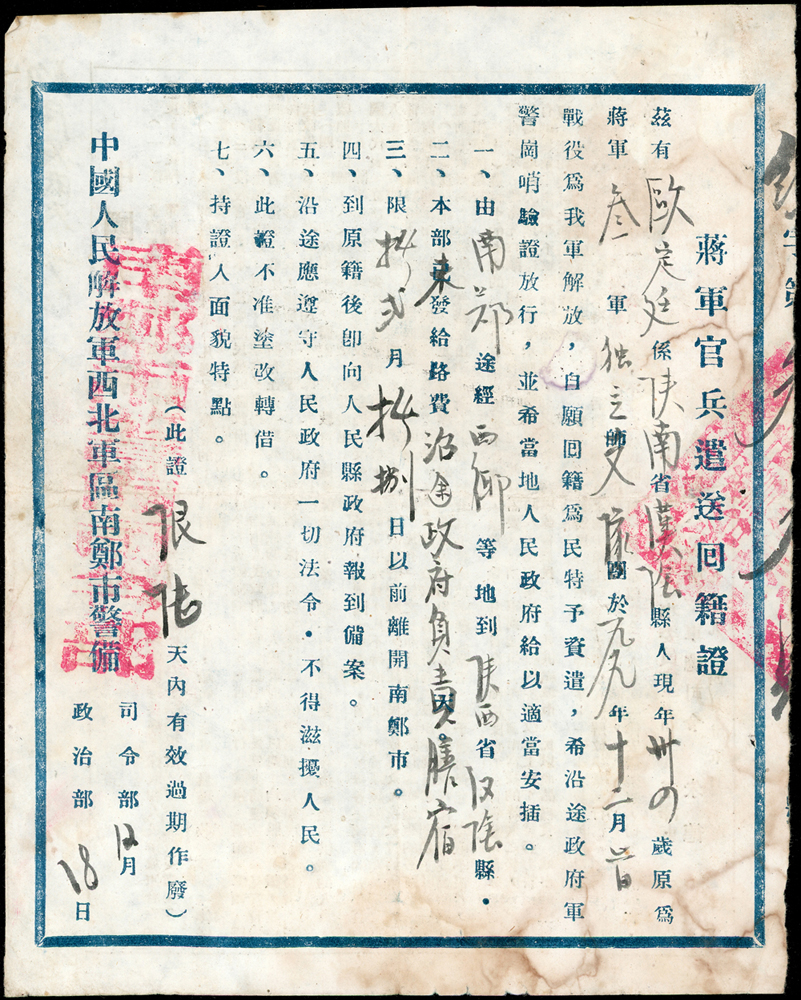 字第
蔣軍官兵遣送回籍證
茲有歐定廷係陕南省漢陰縣人現年卅四歲原為
蔣軍叁軍独立師團於一九四九年十二月
戰役為我軍解放，自願回籍為民特予資遣，希沿途政府軍
警崗哨驗證放行，並希當地人民政府給以適當安插。
一、由南郑途經西鄉等地到陕西省汉陰縣．
二、本部發給路費沿途政府負責膳宿
三、限拾弍月拾捌日以前離開南鄭市。
四、到原籍後卽向人民縣政府報到備案。
五、沿途應遵守人民政府一切法令．不得滋擾人民。
六、此證不准塗改轉借。
七、持證人面貌特點。
（此證限陆天內有效過期作廢）
中國人民解放軍西北軍區南鄭市警備司令部
政治部
12月18日